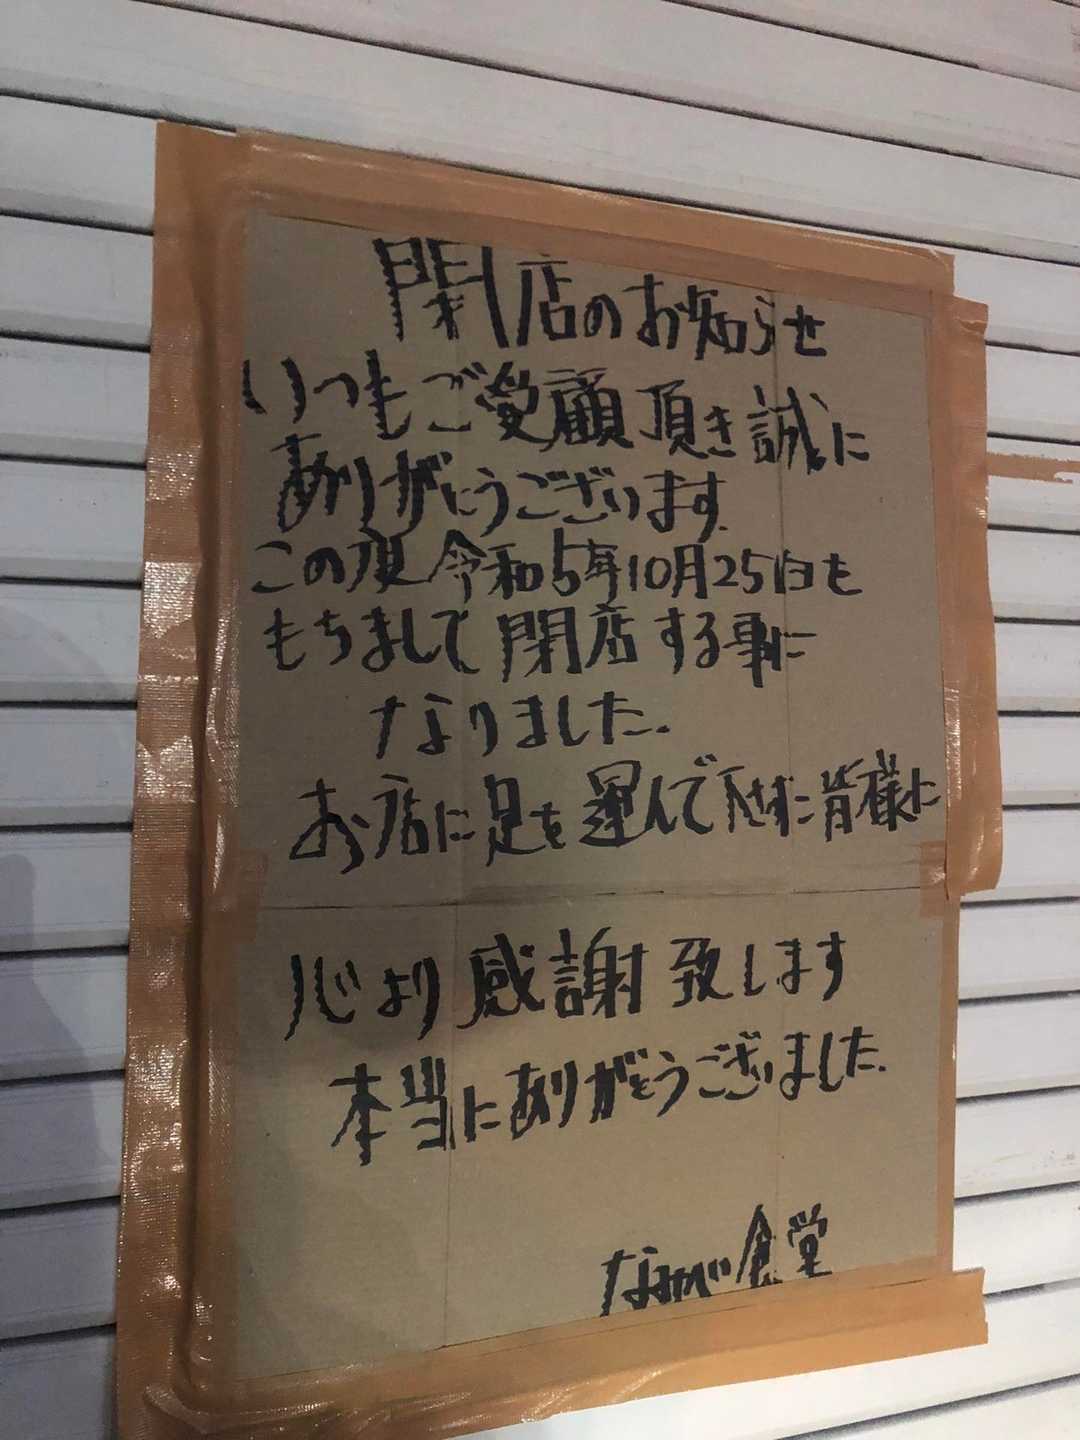 閉店のお知らせ
いつもご愛顧頂き誠に
ありがとうございます。
この度令和5年10月25日も
もちまして閉店する事に
なりました。
お店に足を運んで下さった皆様に
心より感謝致します
本当にありがとうございました。
食堂